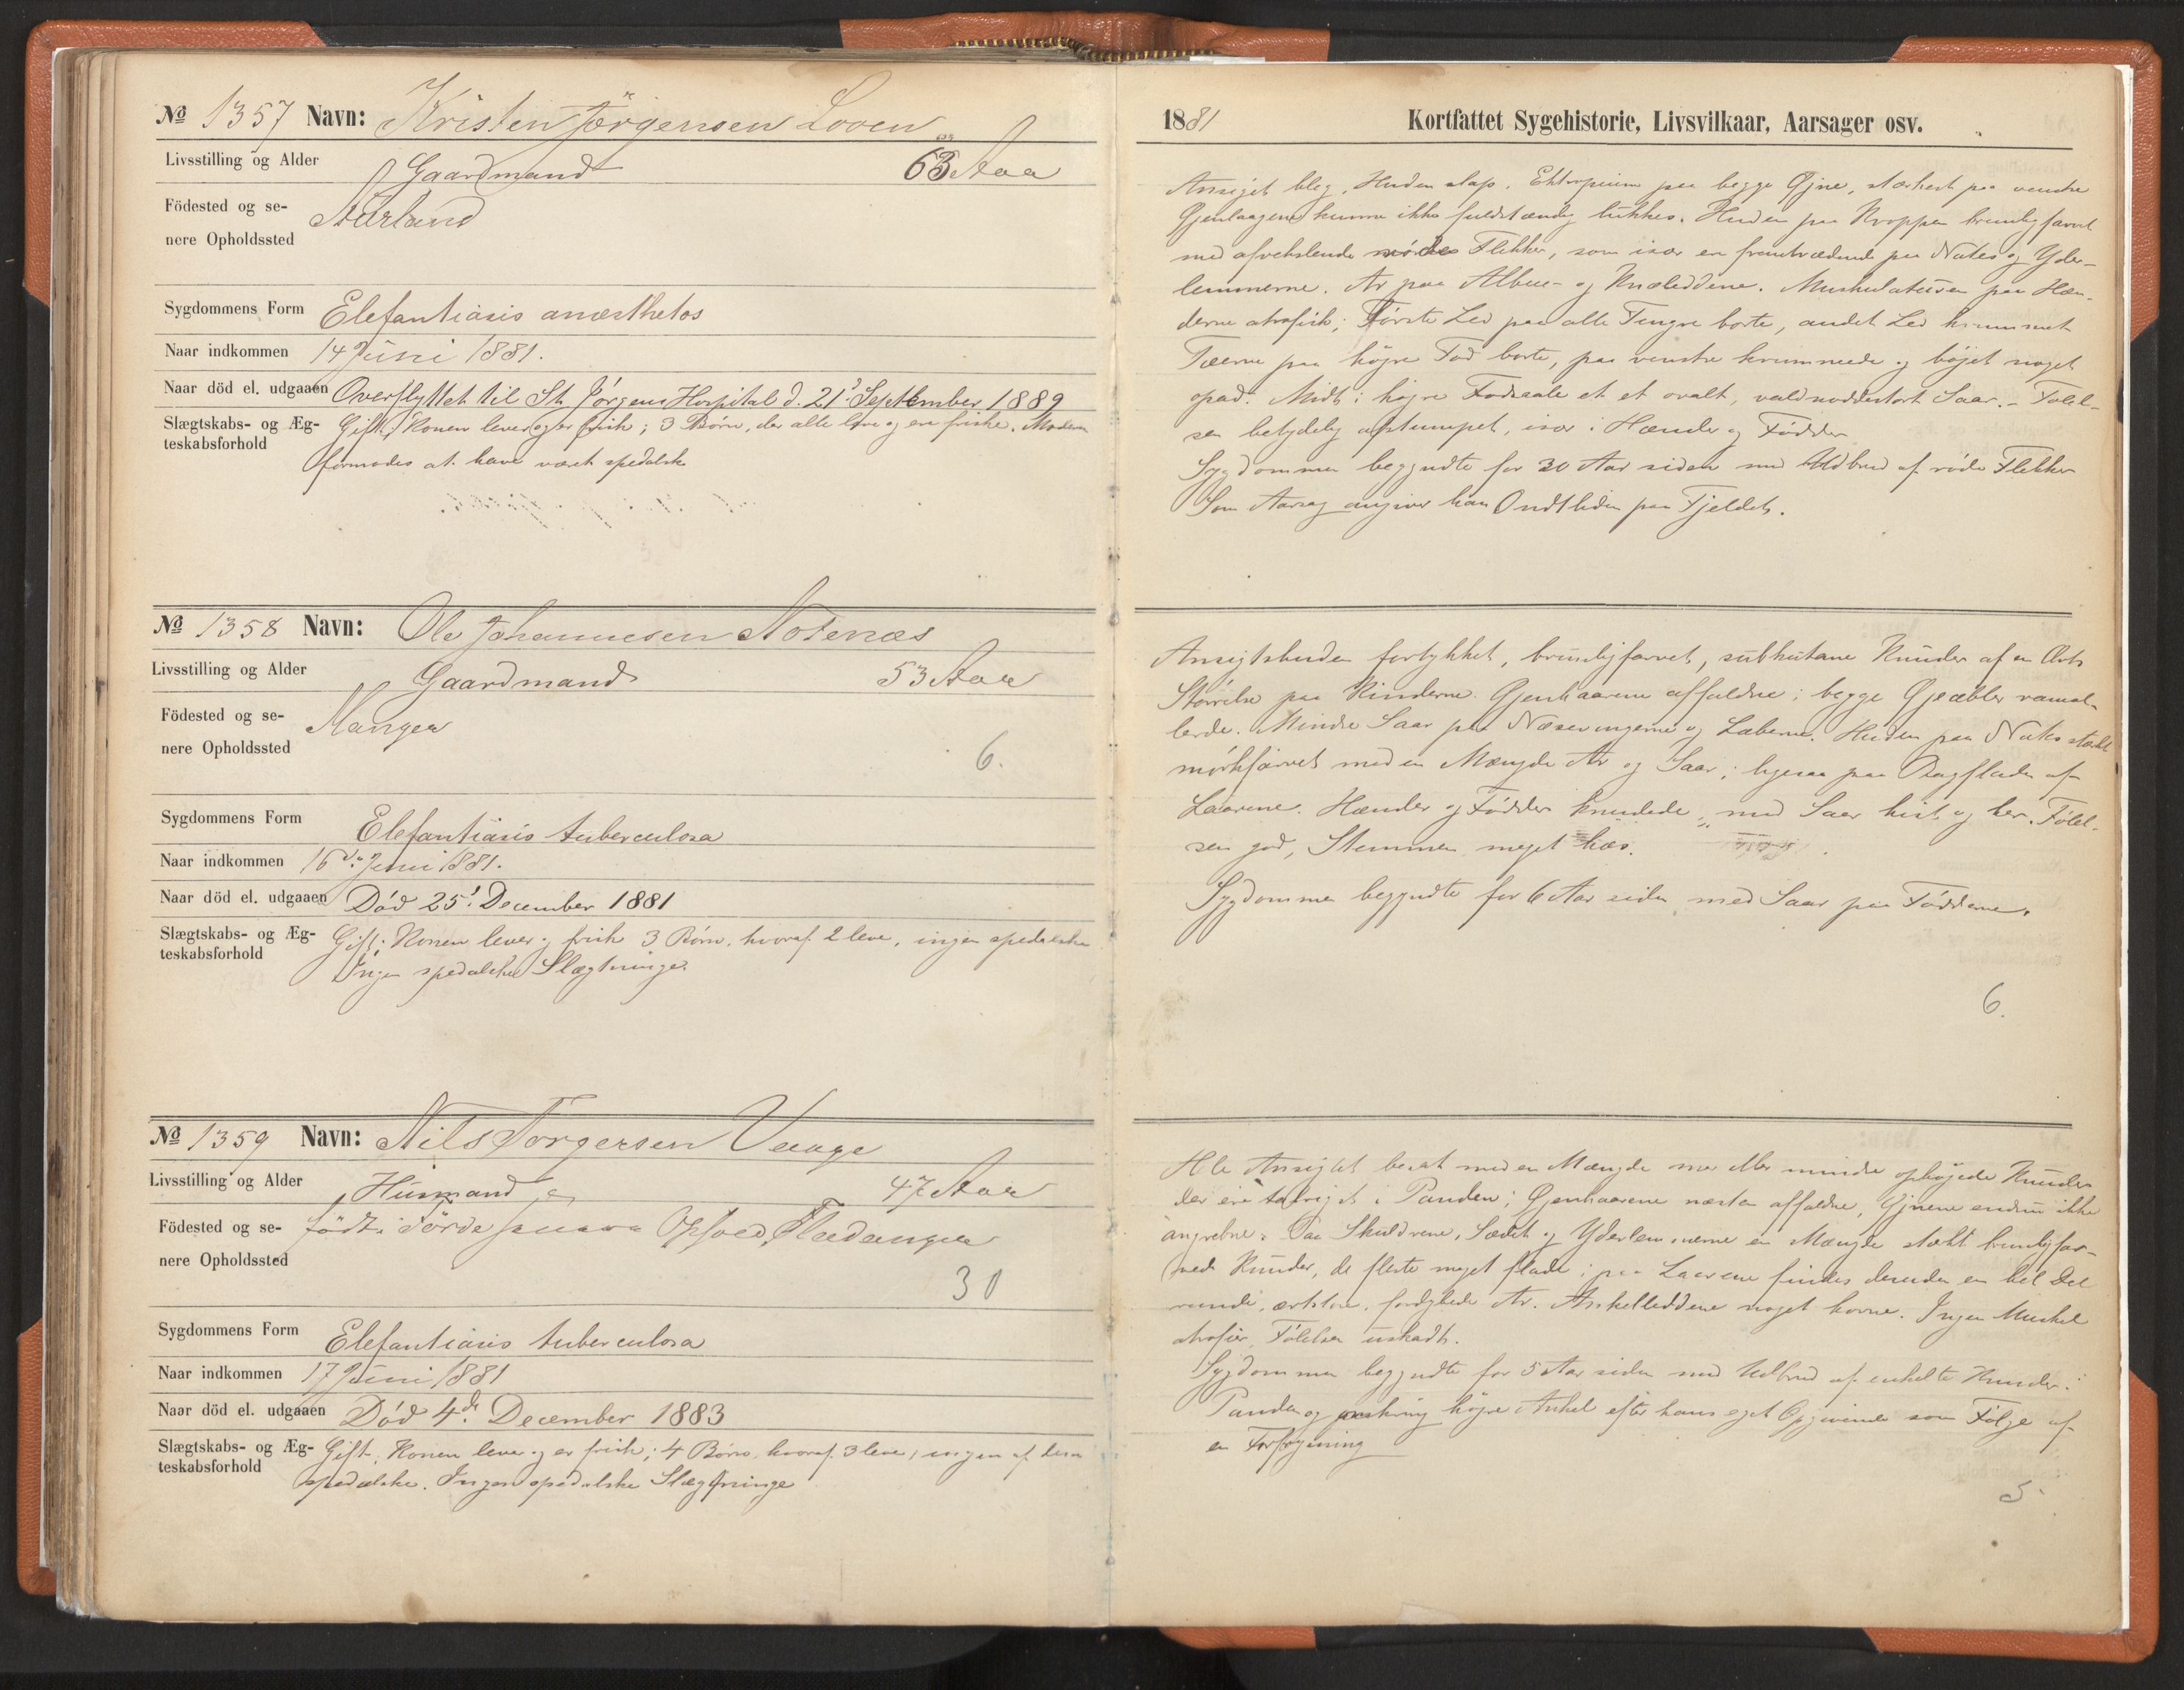 № 1357 Navn: Kristen Jörgensen Loven
Livsstilling og Alder Gaardmand 63 Aar
Födested og se- Aurland
nere Opholdssted
Sygdommens Form Elefantiasis anæsthetos
Naar indkommen 14 Juni 1881.
Naar död el. udgaaen Overflyttet til St. Jörgens Hospital d. 21 September 1889
Slægtskabs- og Æg- Gift, Konen lever og er frisk; 3 Börn, der alle leve og ere friske. Moderen
teskabsforhold formodes at have været spedalsk
№ 1358 Navn: Ole Johannesen Notenæs
Livsstilling og Alder Gaardmand 53 Aar
Födested og se- Manger
nere Opholdssted 6.
Sygdommens Form Elefantiasis tuberculosa
Naar indkommen 16de Juni 1881.
Naar död el. udgaaen Död 25' December 1881
Slægtskabs- og Æg- Gift; Konen lever og frisk 3 Börn, hvoraf 2 leve, ingen spedalske
teskabsforhold Ingen spedalske Slægtninge
№ 1359 Navn: Nils Torgersen Vaage
Livsstilling og Alder Husmand 47 Aar
Födested og se- födt i Förde
nere Opholdssted 30
Sygdommens Form Elefantiasis tuberculosa
Naar indkommen 17 Juni 1881
Naar död el. udgaaen Död 4de December 1883
Slægtskabs- og Æg- Gift, Konen lever og er frisk; 4 Börn, hvoraf 3 leve, ingen af dem
teskabsforhold spedalske. Ingen spedalske Slægtninge
1881 Kortfattet Sygehistorie, Livsvilkaar, Aarsager osv.
Ansigtet bleg, Huden slap. Ektropium paa begge Øjne, stærkest paa venstre
Øjenlaagene kunne ikke fuldstændig lukkes. Huden paa Kroppen brunligfarvet
med afvekslende röde Flekker, som især er fremtrædende paa Nates og Yder-
lemmerne. Ar paa Albue- og Knæleddene. Muskulaturen paa Hæn-
derne atrofisk; Förste Led paa alle Fingre borte, andet Led krummet
Tæerne paa höjre Fod borte, paa venstre krummede og böjet noget
opad. Midt i höjre Fodsaale et et ovalt, valdnöddestort Saar. - Fölel-
sen betydelig afstumpet, især i Hænder og Födder
Sygdommen begyndte for 30 Aar siden med Udbrud af röde Flekker
Som Aarsag angiver han Ondtliden paa Fjeldet.
Ansigtshuden fortykket, brunligfarvet, subkutane Knuder af en Ærts
Störrelse paa Kinderne. Øjenhaarene affaldne; begge Øjeæbler
Mindre Saar paa Næsevingerne og Læberne. Huden paa Nates stærkt
mörkfarvet med en Mængde Ar og Saar; ligesaa paa Bagfladen af
Laarene. Hænder og Födder knudede, med Saar hist og her. Fölel-
sen god, Stemmen meget hæs.
Sygdommen begyndte for 6 Aar siden med Saar paa Födderne.
6.
Hele Ansigtet besat med en Mængde mer eller mindre ophöjede Knuder
der ere talrigst i Panden; Øjenhaarene næsten affaldne, Øjnene endnu ikke
angrebne. Paa Skuldrene, Sædet og Yderlemmerne en Mængde stærkt brunligfar-
vede Knuder, de fleste meget flade; paa Laarene findes desuden en hel Del
runde, ærtstore, fordybede Ar. Ankelleddene noget hovne. Ingen Muskel
atrofier, Fölelsen uskadt.
Sygdommen begyndte for 5 Aar siden med Udbrud af enkelte Knuder i
Panden og omkring höjre Ankel efter hans eget Opgivende som Fölge af
en Forfrysning
5.